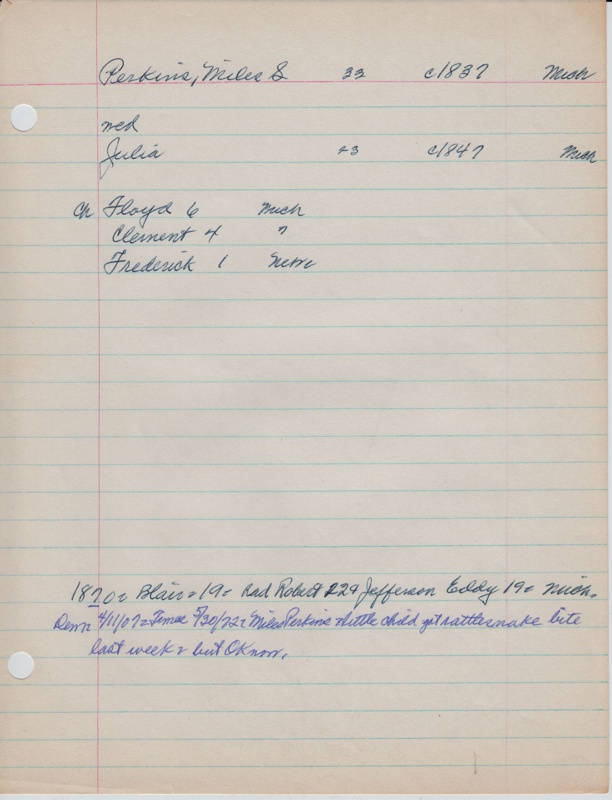 Perkins, Miles S 33 c1837 Mich
md
Julia 23 c1847 Mich
Ch Floyd 6 Mich
Clement 4 "
Frederick 1 Nebr
1870 = Blair = 19 = had Robert 22 & Jefferson Eddy 19 = Mich.
4/11/07 = Times 5/30/72 = Miles Perkins = little child got rattlesnake bite
last week = but OK now.